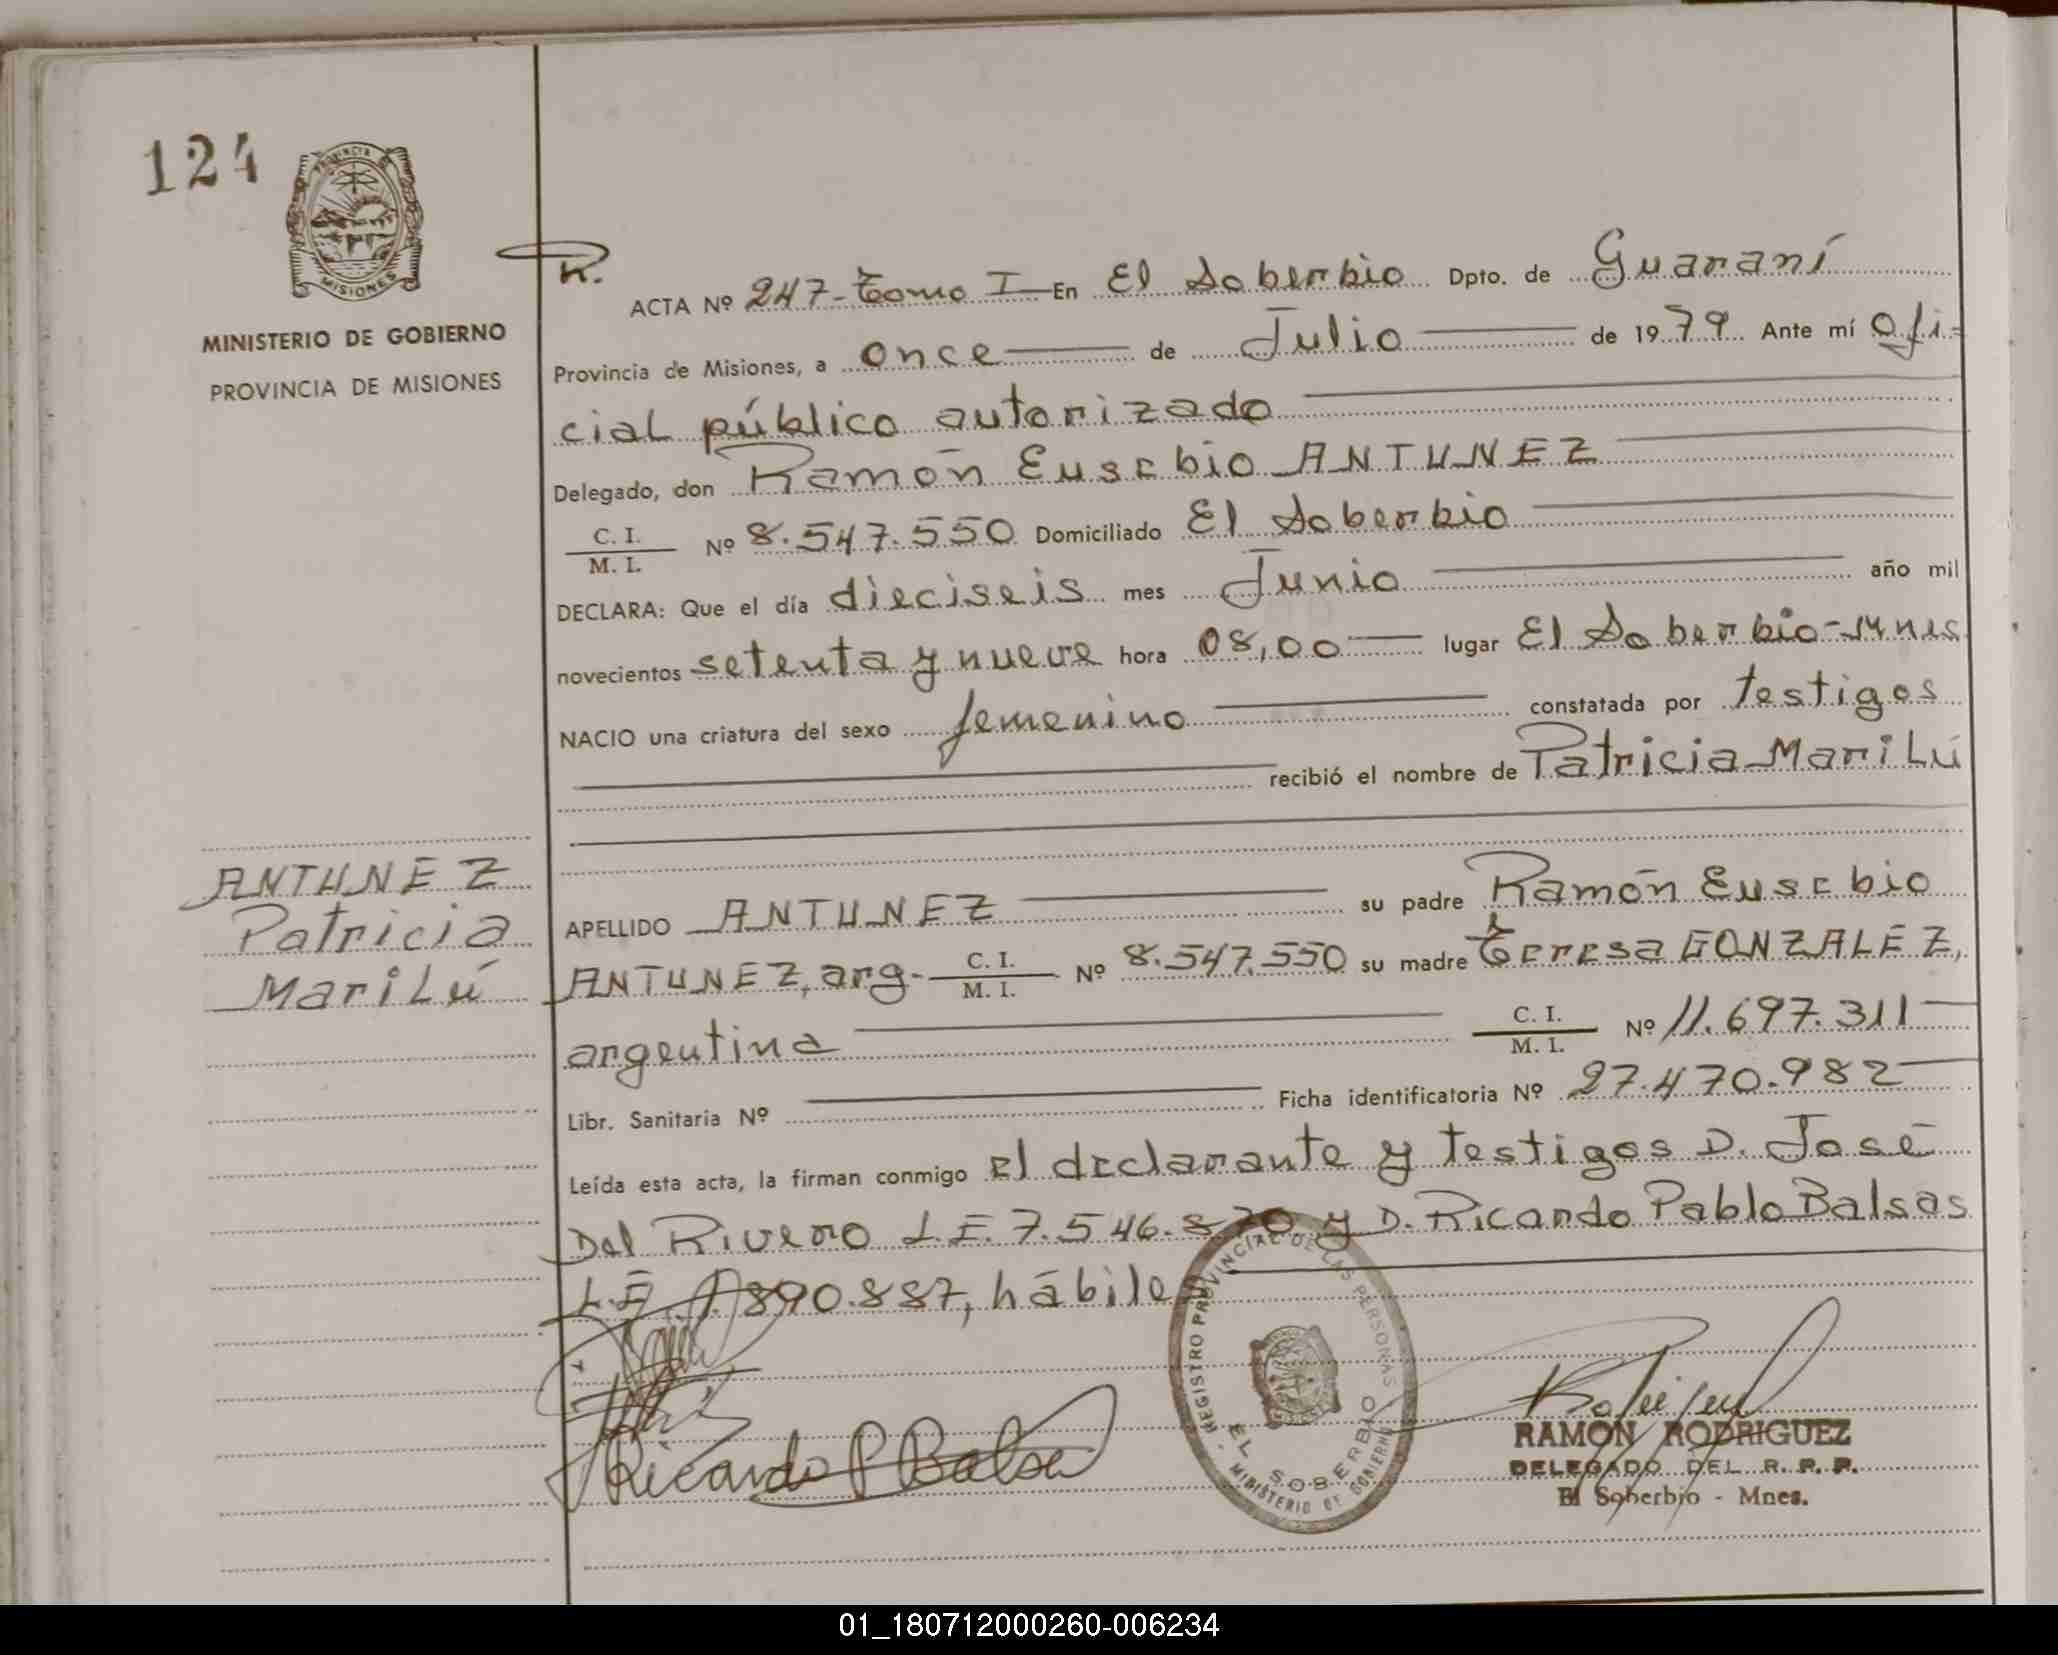 124
PROVINCIA DE
MISIONES
MINISTERIO DE GOBIERNO
PROVINCIA DE MISIONES
R.
ACTA Nº 247-Tomo I En El Soberbio Dpto. de Guaraní
Provincia de Misiones, a once de Julio de 1979 Ante mí Ofi=
cial público autorizado
Delegado, don Ramón Eusebio ANTUNEZ
C. I.
M. I.
Nº 8.547.550 Domiciliado El Soberbio
DECLARA: Que el día dieciseis mes Junio año mil
novecientos setenta y nueve hora 08,00 lugar El Soberbio-Mnes
NACIO una criatura del sexo femenino constatada por testigos
recibió el nombre de Patricia MariLú
ANTUNEZ
Patricia
MariLú
APELLIDO ANTUNEZ su padre Ramón Eusebio
ANTUNEZ, arg- C. I. M. I. Nº 8.547.550 su madre Teresa GONZALEZ,
argentina C. I. M. I. Nº 11.697.311
Libr. Sanitaria Nº Ficha identificatoria Nº 27.470.982
Leída esta acta, la firman conmigo el declarante y testigos D. José
Del Rivero L.E. 7.546.870 y D. Ricardo Pablo Balsas
L.E. 890.887, hábiles
REGISTRO PROVINCIAL DE LAS PERSONAS
EL SOBERBIO
MINISTERIO DE GOBIERNO
Ricardo P Balsa
RAMON RODRIGUEZ
DELEGADO DEL R. P. P.
El Soberbio - Mnes.
01_180712000260-006234